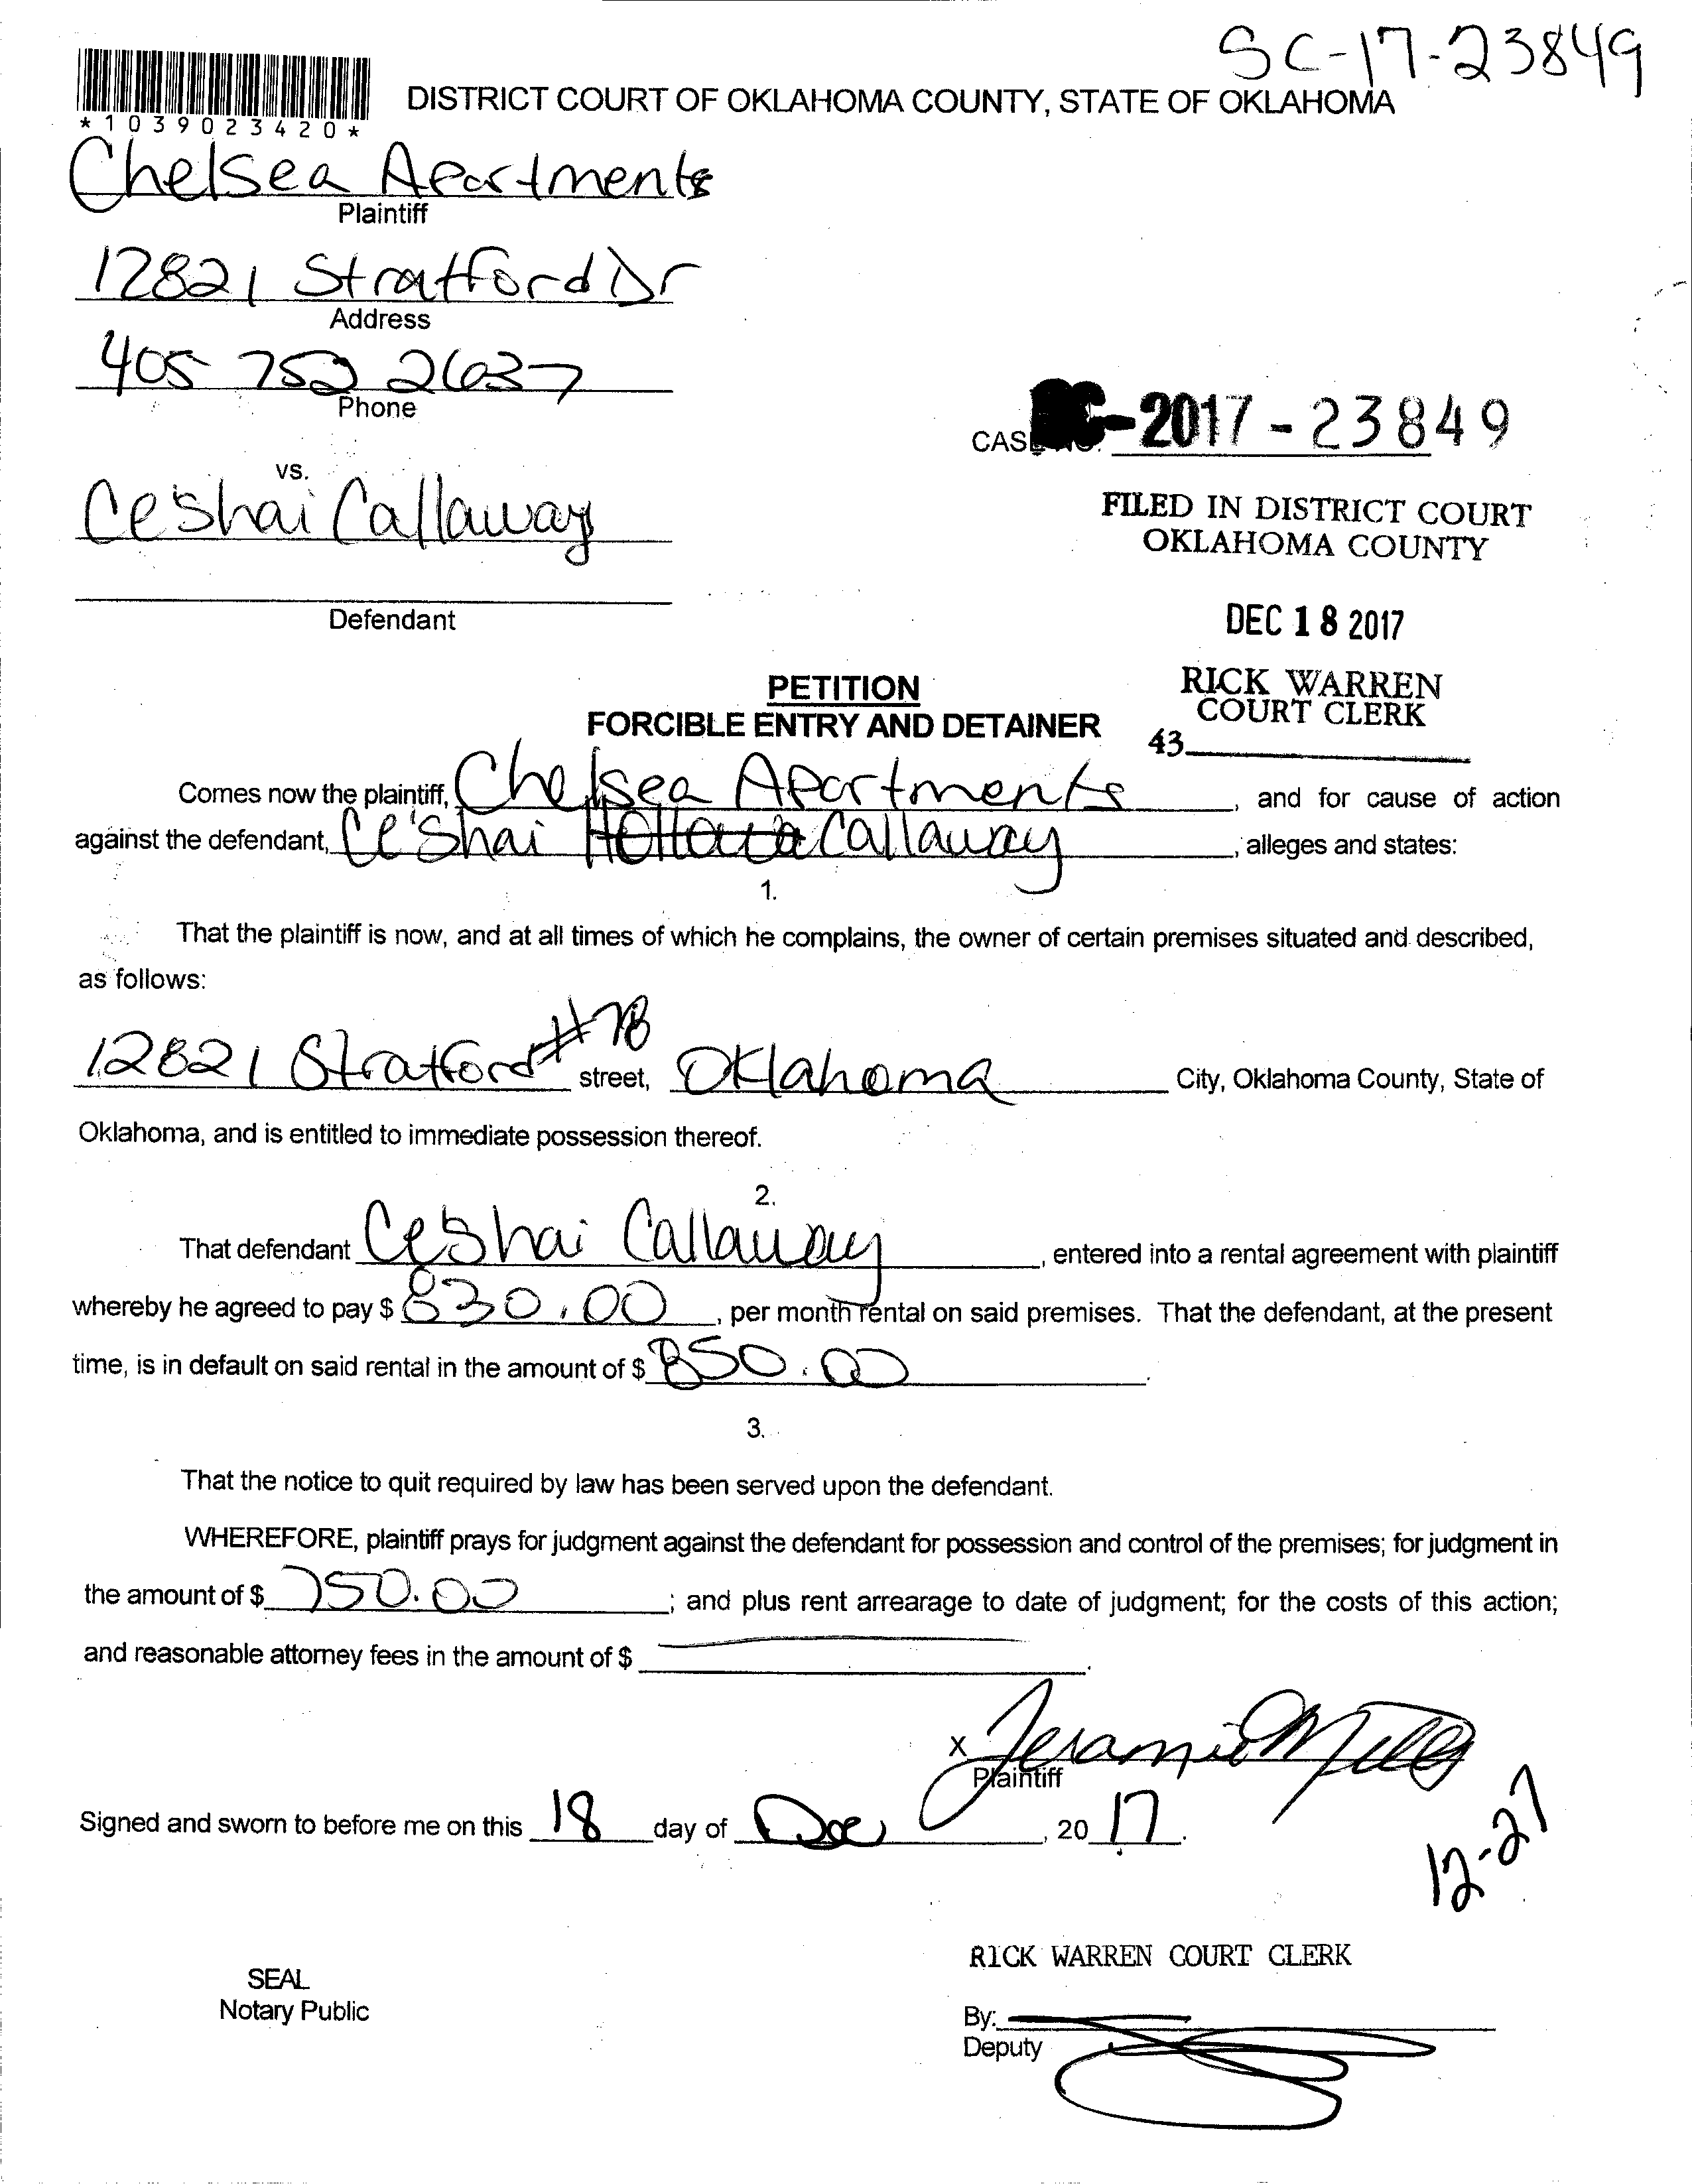 SC-17-23849
*1039023420*
DISTRICT COURT OF OKLAHOMA COUNTY, STATE OF OKLAHOMA
Chelsea Apartments
Plaintiff
12821 Stratford Dr
Address
405 752 2637
Phone
CASE NO. SC-2017-23849
vs.
Ceshai Callaway
FILED IN DISTRICT COURT
OKLAHOMA COUNTY
Defendant
DEC 18 2017
PETITION
FORCIBLE ENTRY AND DETAINER
RICK WARREN
COURT CLERK
43
Comes now the plaintiff, Chelsea Apartments, and for cause of action
against the defendant, Ce'Shai Callaway, alleges and states:
1.
That the plaintiff is now, and at all times of which he complains, the owner of certain premises situated and described,
as follows:
12821 Stratford #78 street, Oklahoma City, Oklahoma County, State of
Oklahoma, and is entitled to immediate possession thereof.
2.
That defendant Ceshai Callaway, entered into a rental agreement with plaintiff
whereby he agreed to pay $ 830.00, per month rental on said premises. That the defendant, at the present
time, is in default on said rental in the amount of $ 850.00.
3.
That the notice to quit required by law has been served upon the defendant.
WHEREFORE, plaintiff prays for judgment against the defendant for possession and control of the premises; for judgment in
the amount of $ 750.00; and plus rent arrearage to date of judgment; for the costs of this action;
and reasonable attorney fees in the amount of $
X Jeramie Mills
Plaintiff
Signed and sworn to before me on this 18 day of Dec, 20 17.
12-27
RICK WARREN COURT CLERK
SEAL
Notary Public
By:
Deputy